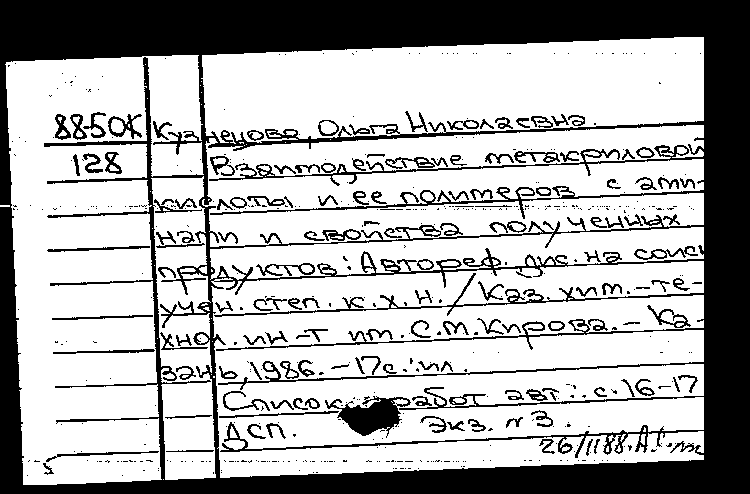 88-5ОК Кузнецова, Ольга Николаевна.
128 Взаимодействие метакриловой
кислоты и ее полимеров с ами-
нами и свойства полученных
продуктов: Автореф. дис. на соиск
учен. степ. к.х.н. / Каз. хим.-те-
хнол. ин-т им. С.М. Кирова. - Ка-
зань, 1986. - 17с.: ил.
Список работ авт.: с. 16-17
ДСП. Экз. №3.
26/1188.